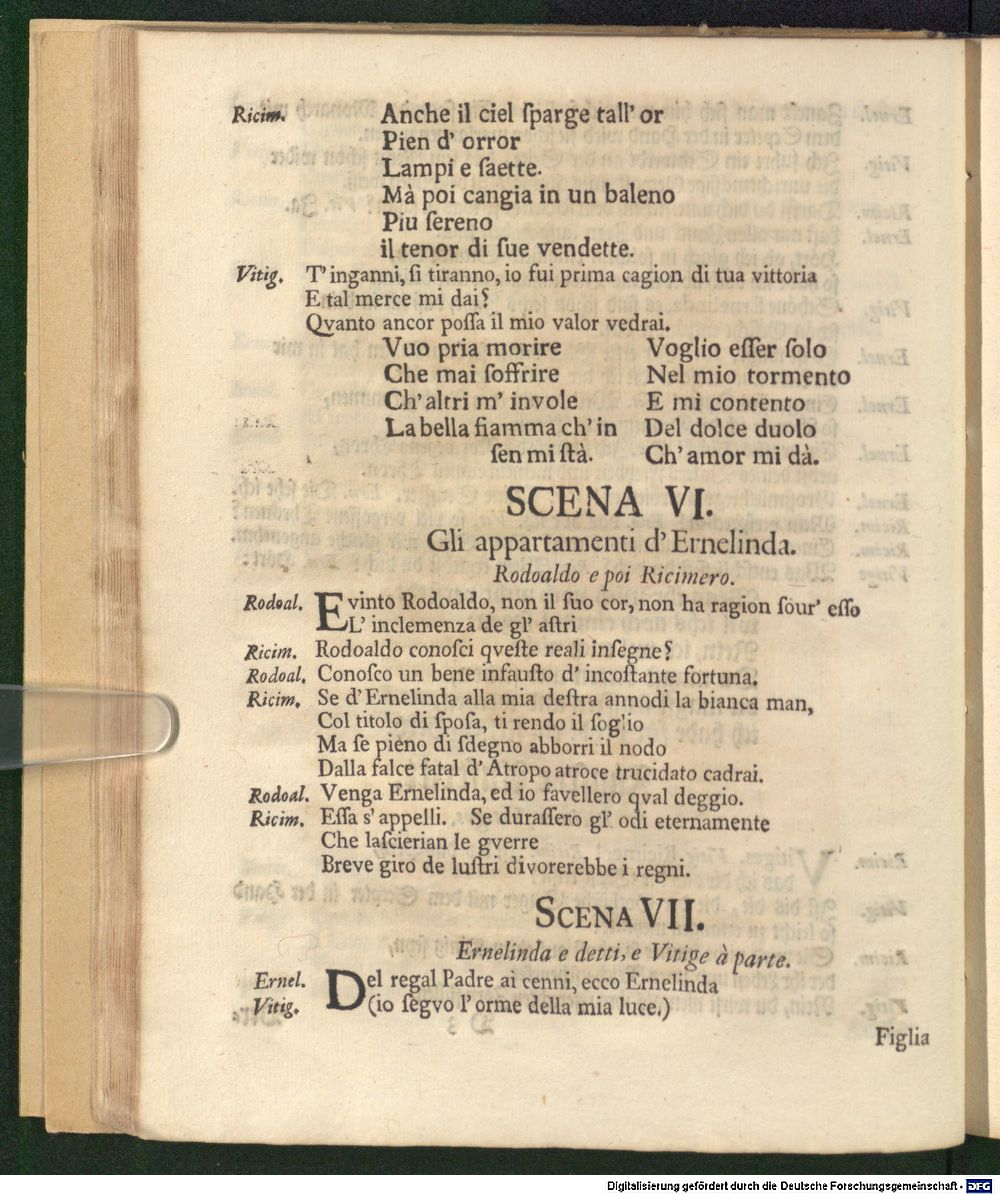 Ricim. Anche il ciel ſparge tall' or
Pien d' orror
Lampi e ſaette.
Mà poi cangia in un baleno
Piu ſereno
il tenor di ſue vendette.
Vitig. T' inganni, ſi tiranno, io fui prima cagion di tua vittoria
E tal merce mi dai?
Qvanto ancor poſſa il mio valor vedrai.
Vuo pria morire
Che mai ſoffrire
Ch' altri m' invole
La bella fiamma ch' in
ſen mi ſtà.
Voglio eſſer ſolo
Nel mio tormento
E mi contento
Del dolce duolo
Ch' amor mi dà.
SCENA VI.
Gli appartamenti d' Ernelinda.
Rodoaldo e poi Ricimero.
Rodoal. E vinto Rodoaldo, non il ſuo cor, non ha ragion ſour' eſſo
L' inclemenza de gl' aſtri
Ricim. Rodoaldo conoſci qveſte reali inſegne?
Rodoal. Conoſco un bene infauſto d' incoſtante fortuna.
Ricim. Se d' Ernelinda alla mia deſtra annodi la bianca man,
Col titolo di ſpoſa, ti rendo il ſoglio
Ma ſe pieno di ſdegno abborri il nodo
Dalla falce fatal d' Atropo atroce trucidato cadrai.
Rodoal. Venga Ernelinda, ed io favellero qval deggio.
Ricim. Eſſa s' appelli. Se duraſſero gl' odi eternamente
Che laſcierian le gverre
Breve giro de luſtri divorerebbe i regni.
SCENA VII.
Ernelinda e detti, e Vitige à parte.
Ernel. Del regal Padre ai cenni, ecco Ernelinda
Vitig. (io ſegvo l' orme della mia luce.)
Figlia
Digitalisierung gefördert durch die Deutsche Forschungsgemeinschaft - DFG